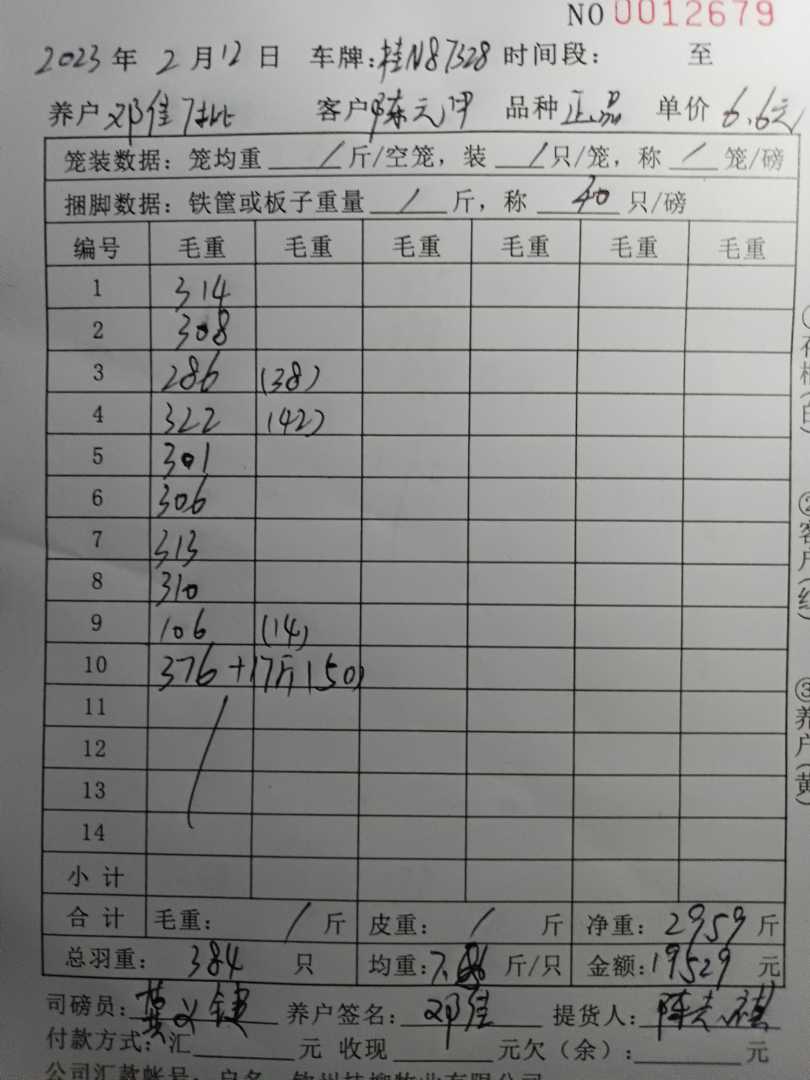 NO 0012679
2023 年 2 月 12 日 车牌:桂N87328 时间段: 至
养户 邓佳 客户 陈元 品种 正品 单价 6.6元
笼装数据: 笼均重 / 斤/空笼, 装 / 只/笼, 称 / 笼/磅
捆脚数据: 铁筐或板子重量 / 斤, 称 40 只/磅
编号 毛重 毛重 毛重 毛重 毛重 毛重
1 314
2 308
3 286 (38)
4 322 (42)
5 301
6 306
7 313
8 310
9 106 (14)
10 376+17斤(50)
11
12
13
14
小 计
合 计 毛重: / 斤 皮重: / 斤 净重: 2959 斤
总羽重: 384 只 均重: 斤/只 金额: 19529 元
司磅员: 黄义健 养户签名: 邓佳 提货人: 陈
付款方式: 汇 元 收现 元欠(余): 元
公司汇款帐号: 户名
②客户(红)
③养户(黄)